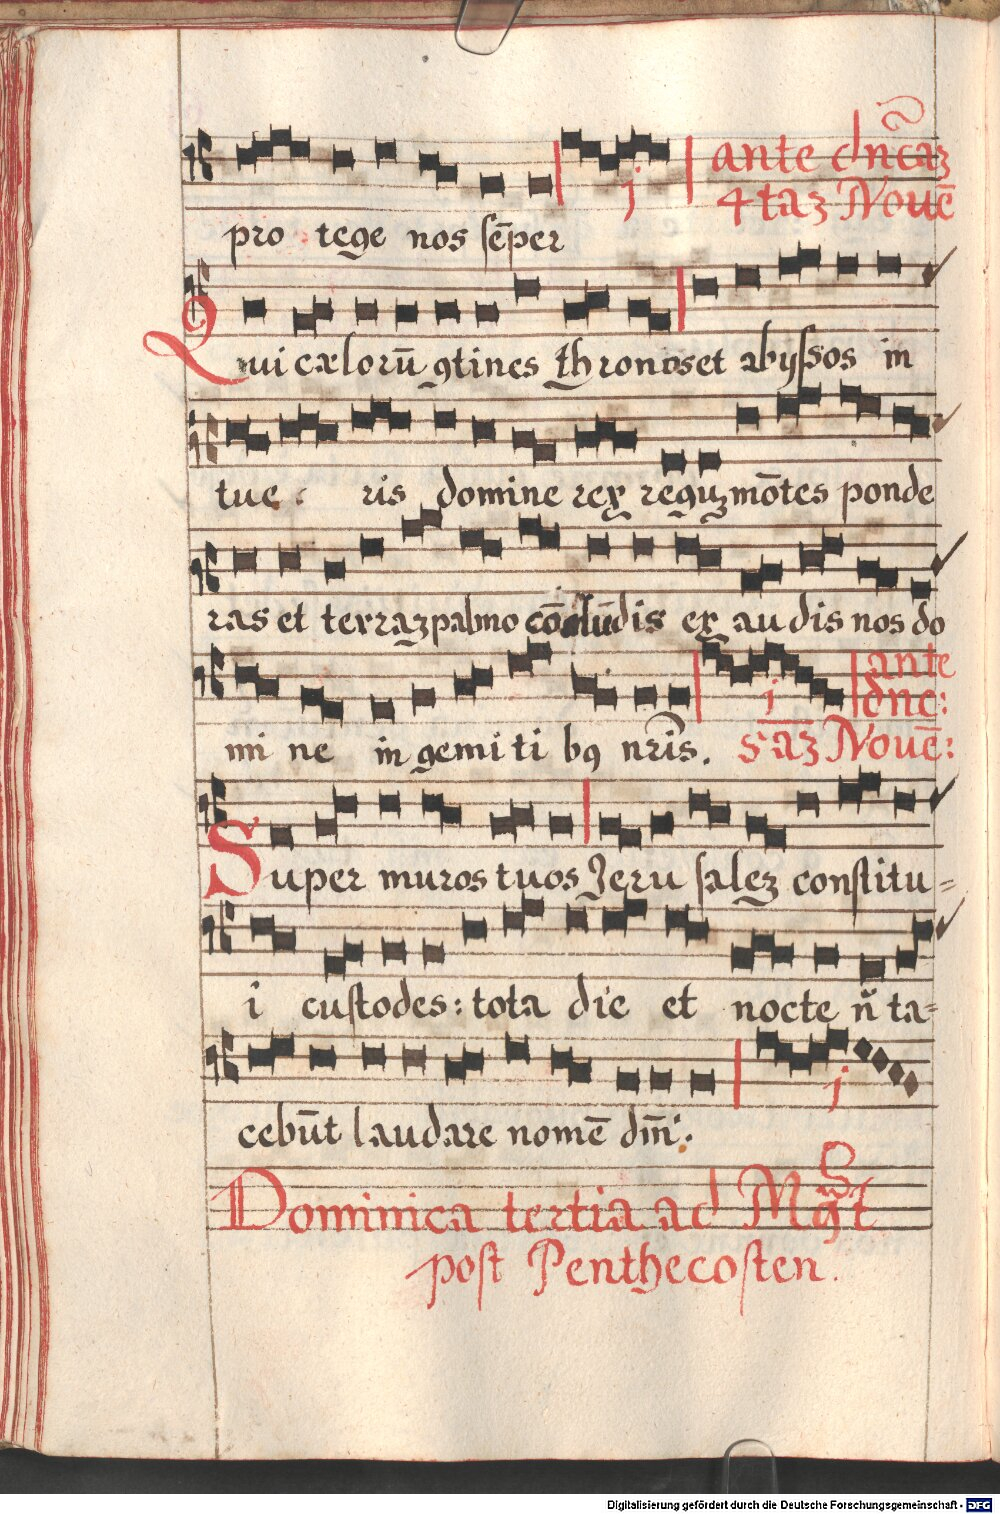 ante dn̄caz
pro tege nos sēper 4 taz Nouē
Qui cælorū ꝯtines thronos et abyssos in
tue : ris domine rex reguz mōtes ponde
ras et terraz palmo cōcludis ex audis nos do
ante
dnc:
mi ne in gemi ti bꝯ nr̄is. 5 az Nouē:
Super muros tuos Jeru salez constitu=
i custodes: tota die et nocte n̄ ta=
cebūt laudare nomē dn̄i:
Dominica tertia ad Mgt
post Penthecosten.
Digitalisierung gefördert durch die Deutsche Forschungsgemeinschaft - DFG